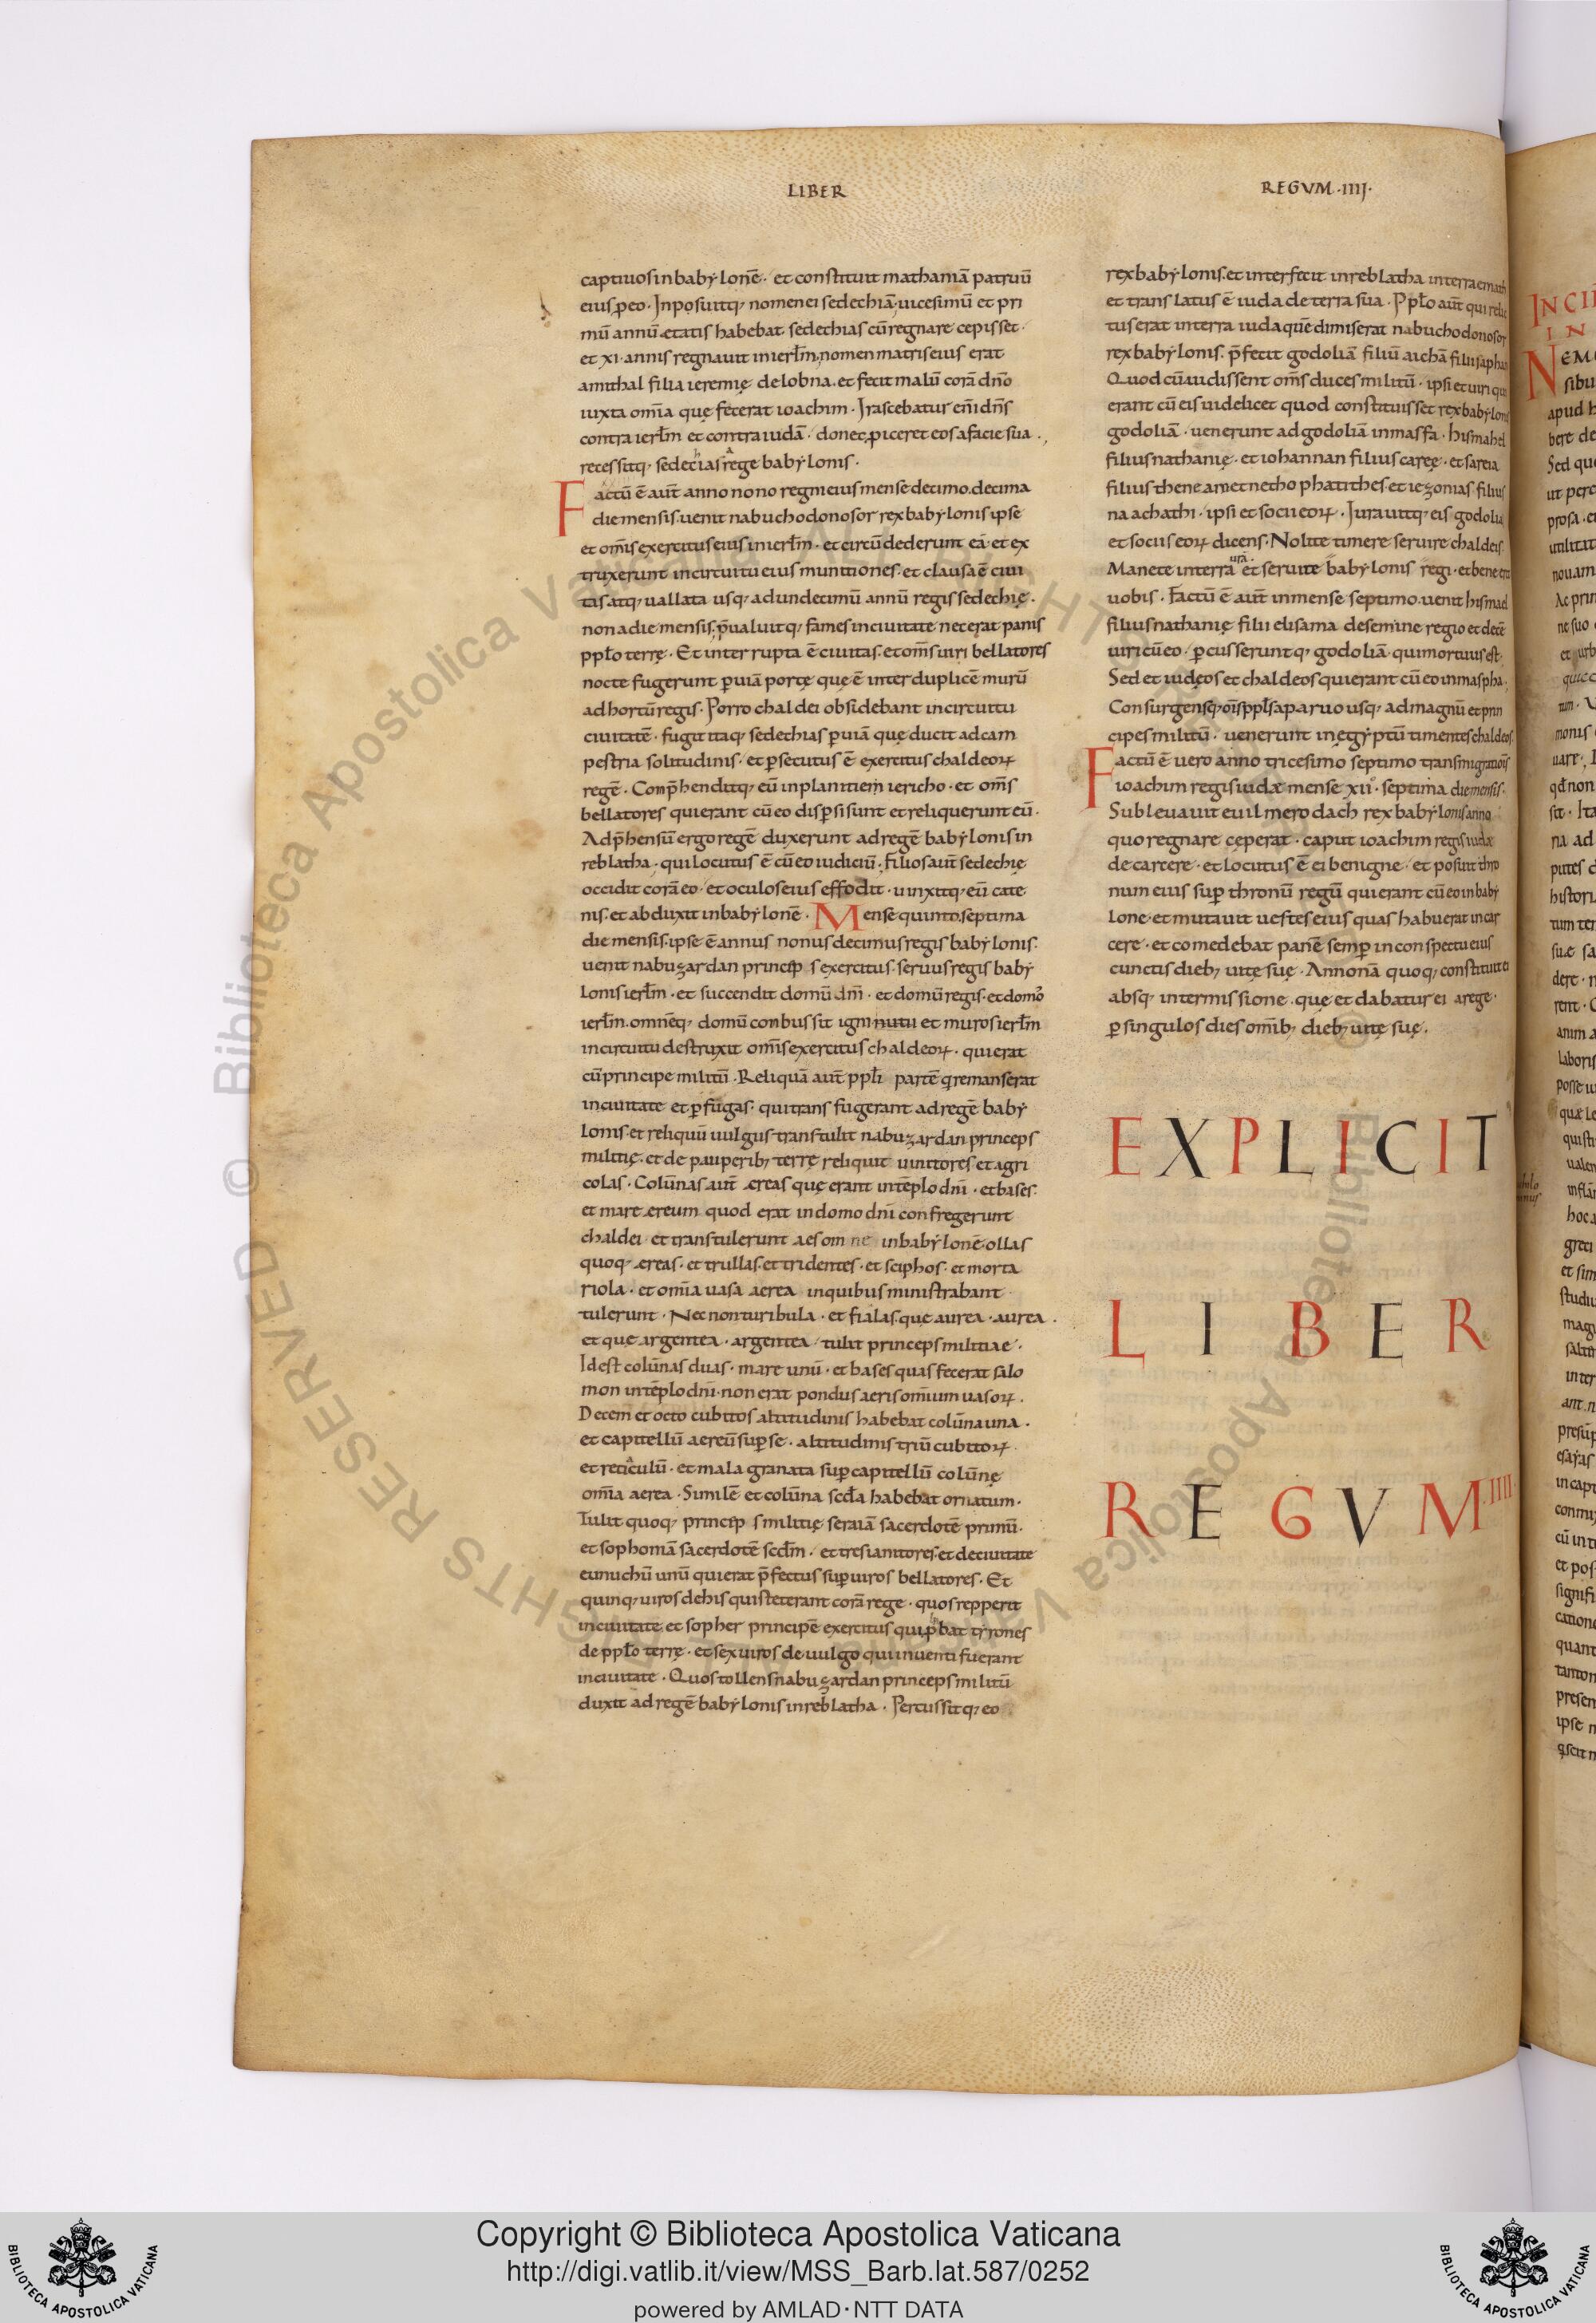 LIBER
REGVM ·IIIJ·
captiuos in babẏlonē · et constituit mathaniā patruū
eius ꝓ eo · Inposuitq; nomen ei sedechiā · uicesimū et pri
mū annū ętatis habebat sedechias cū regnare cepisset ·
et xi · annis regnauit in ierłm, nomen matris eius erat
amithal filia ieremię de lobna · et fecit malū corā dño
iuxta om̄ia quę fecerat ioachim · Irascebatur eñi dñs
contra ierłm et contra iudā · donec ꝓiceret eos a facie sua ·,
recessitq; sedechias a rege babẏlonis ·
Factū ē aut̄ anno nono regni eius mense decimo. decima
die mensis. uenit nabuchodonosor rex babẏlonis ipse
et om̄is exercitus eius in ierłm · et circūdederunt eā · et ex
truxerunt in circuitu eius munitiones · et clausa ē ciui
tas atq; uallata usq; ad undecimū annū regis sedechię ·
nona die mensis. p̄ualuitq; fames in ciuitate nec erat panis
ppło terrę · Et interrupta ē ciuitas · et om̄s uiri bellatores
nocte fugerunt ꝑ uiā portę quę ē inter duplicē murū
ad hortū regis · Porro chaldei obsidebant in circuitu
ciuitatē · fugit itaq; sedechias ꝑ uiā quę ducit ad cam
pestria solitudinis · et ꝑsecutus ē exercitus chaldeoꝝ
regē · Comp̄henditq; eū in planitiem iericho · et om̄s
bellatores qui erant cū eo disꝑsi sunt et reliquerunt eū ·
Adp̄hensū ergo regē duxerunt ad regē babẏlonis in
reblatha · qui locutus ē cū eo iudiciū · Filios aut̄ sedechię
occidit corā eo · et oculos eius effodit · uinxitq; eū cate
nis · et abduxit in babẏlonē · Mense quinto. septima
die mensis · ipse ē annus nonus decimus regis babẏlonis ·
uenit nabuzardan princeps exercitus · seruus regis babẏ
lonis ierłm · et succendit domū dñi · et domū regis · et domos
ierłm · omnēq; domū conbussit igni nutu et muros ierłm
in circuitu destruxit om̄is exercitus chaldeoꝝ · qui erat
cū principe militū · Reliquā aut̄ ppłi partē q̨ remanserat
in ciuitate et ꝑfugas · qui transfugerant ad regē babẏ
lonis · et reliquū uulgus transtulit nabuzardan princeps
militię · et de pauperib; terrę reliquit uinitores et agri
colas · Colūnas aut̄ ęreas quę erant in tēplo dñi · et bases ·
et mare ęreum quod erat in domo dñi confregerunt
chaldei · et transtulerunt aes omne in babẏlonē · ollas
quoq; ęreas · et trullas · et tridentes · et sciphos · et morta
riola · et om̄ia uasa aerea in quibus ministrabant
tulerunt · Nec non turibula · et fialas · que aurea · aurea ·
et que argentea · argentea · tulit princeps militiae ·
Id est colūnas duas · mare unū · et bases quas fecerat salo
mon in tēplo dñi · non erat pondus aeris omīum uasoꝝ ·
Decem et octo cubitos altitudinis habebat colūna una ·
et capitellū aereū suꝑ se · altitudinis triū cubitoꝝ ·
et reticulū · et mala granata suꝑ capitellū colūnę
om̄ia aerea · Similē et colūna scd̄a habebat ornatum ·
Tulit quoq; princeps militię seraiā sacerdotē primū ·
et sophoniā sacerdotē scd̄m · et tres ianitores · et de ciuitate
eunuchū unū qui erat p̄fectus suꝑ uiros bellatores · Et
quinq; uiros de his qui steterant corā rege · quos repperit
in ciuitate · et sopher principē exercitus qui ꝓbat tẏrones
de ppło terrę · et sex uiros de uulgo qui inuenti fuerant
in ciuitate · Quos tollens nabuzardan princeps militū
duxit ad regē babẏlonis in reblatha · Percussitq; eo
rex babẏlonis · et interfecit in reblatha in terra emath
et translatus ē iuda de terra sua · Ppło aut̄ qui relic
tus erat in terra iuda quē dimiserat nabuchodonosor
rex babẏlonis. p̄fecit godoliā filiū aichā filii saphan
Quod cū audissent om̄s duces militū · ipsi et uiri qui
erant cū eis uidelicet quod constituisset rex babẏlonis
godoliā · uenerunt ad godoliā in masfa · hismahel
filius nathanię · et iohannan filius careę · et sareia
filius theneamet nethophatithes · et iezonias filius
naachathi · ipsi et socii eoꝝ · Iurauitq; eis godolia
et sociis eoꝝ dicens · Nolite timere seruire chaldeis
Manete in terra urā et seruite babẏlonis regi · et bene erit
uobis · Factū ē aut̄ in mense septimo. uenit hismael
filius nathanię filii elisama de semine regio et decē
uiri cū eo · ꝑcusseruntq; godoliā · qui mortuus est ·
Sed et iudęos et chaldeos qui erant cū eo in maspha ·
Consurgensq; oīs ppłs a paruo usq; ad magnū et prin
cipes militū · uenerunt in egẏptū timentes chaldeos
Factū ē uero anno tricesimo septimo transmigrationis
ioachim regis iudæ mense xii° · septima die mensis ·
Subleuauit euilmerodach rex babẏlonis anno
quo regnare cęperat · caput ioachim regis iudæ
de carcere · et locutus ē ei benigne · et posuit thro
num eius suꝑ thronū regū qui erant cū eo in babẏ
lone · et mutauit uestes eius quas habuerat in car
cere · et comedebat panē semꝑ in conspectu eius
cunctis dieb; uitę suę · Annonā quoq; constituit ei
absq; intermissione · quę et dabatur ei a rege ·
ꝑ singulos dies om̄ib; dieb; uitę suę ·
EXPLICIT
LIBER
REGVM · IIII ·
Copyright © Biblioteca Apostolica Vaticana
http://digi.vatlib.it/view/MSS_Barb.lat.587/0252
powered by AMLAD·NTT DATA